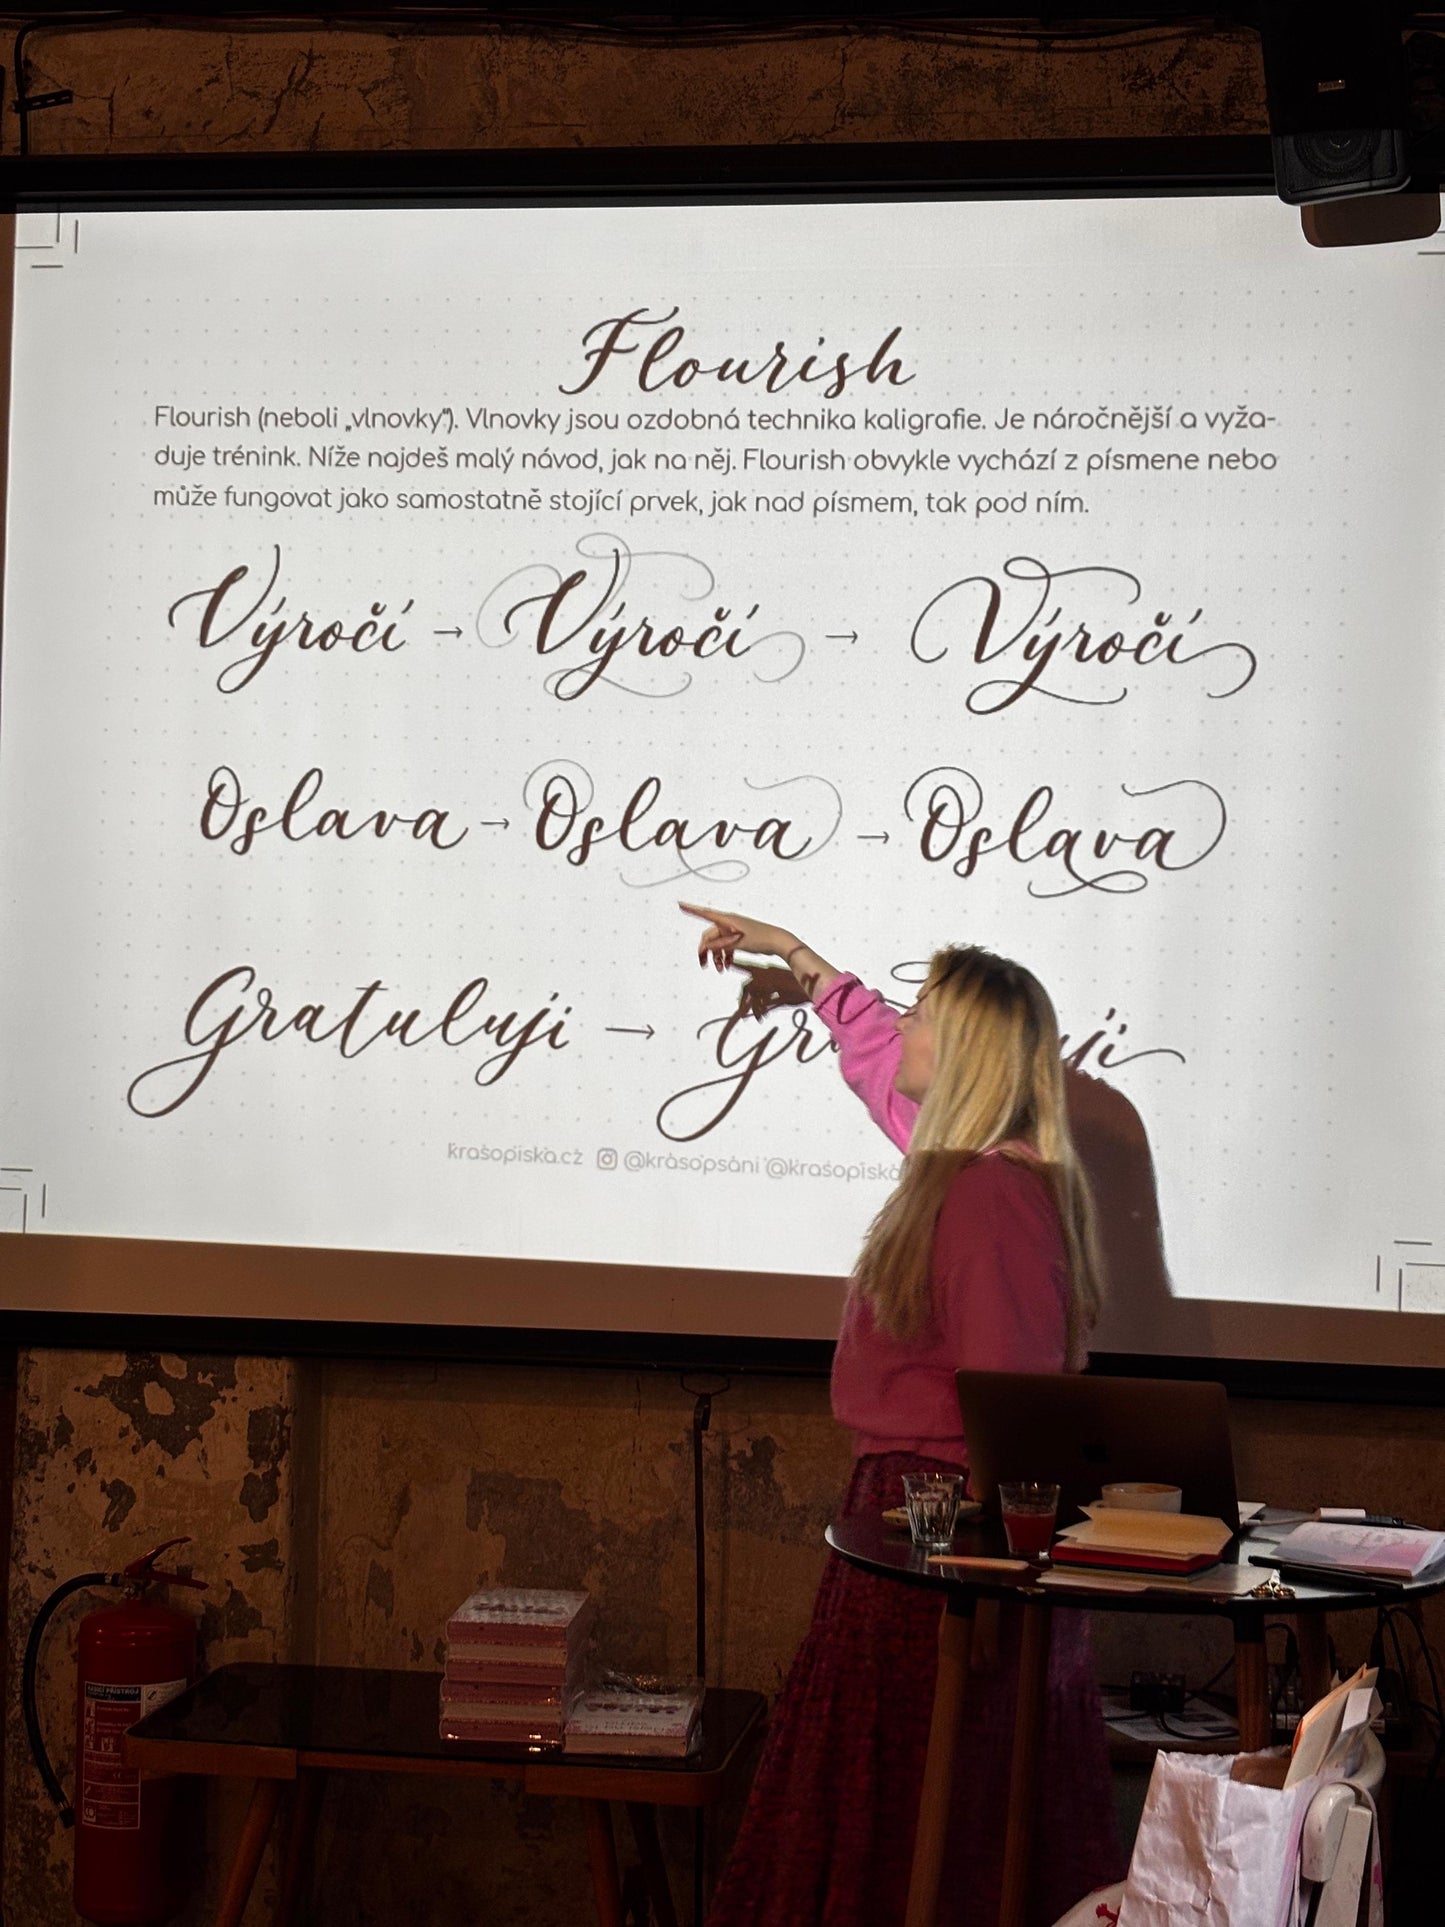 Flourish
Flourish (neboli „vlnovky“). Vlnovky jsou ozdobná technika kaligrafie. Je náročnější a vyža-
duje trénink. Níže najdeš malý návod, jak na něj. Flourish obvykle vychází z písmene nebo
může fungovat jako samostatně stojící prvek, jak nad písmem, tak pod ním.
Výročí → Výročí → Výročí
Oslava → Oslava → Oslava
Gratuluji → Gra uji
krasopiska.cz @krasopsani @krasopiska
HASICÍ PŘÍSTROJ